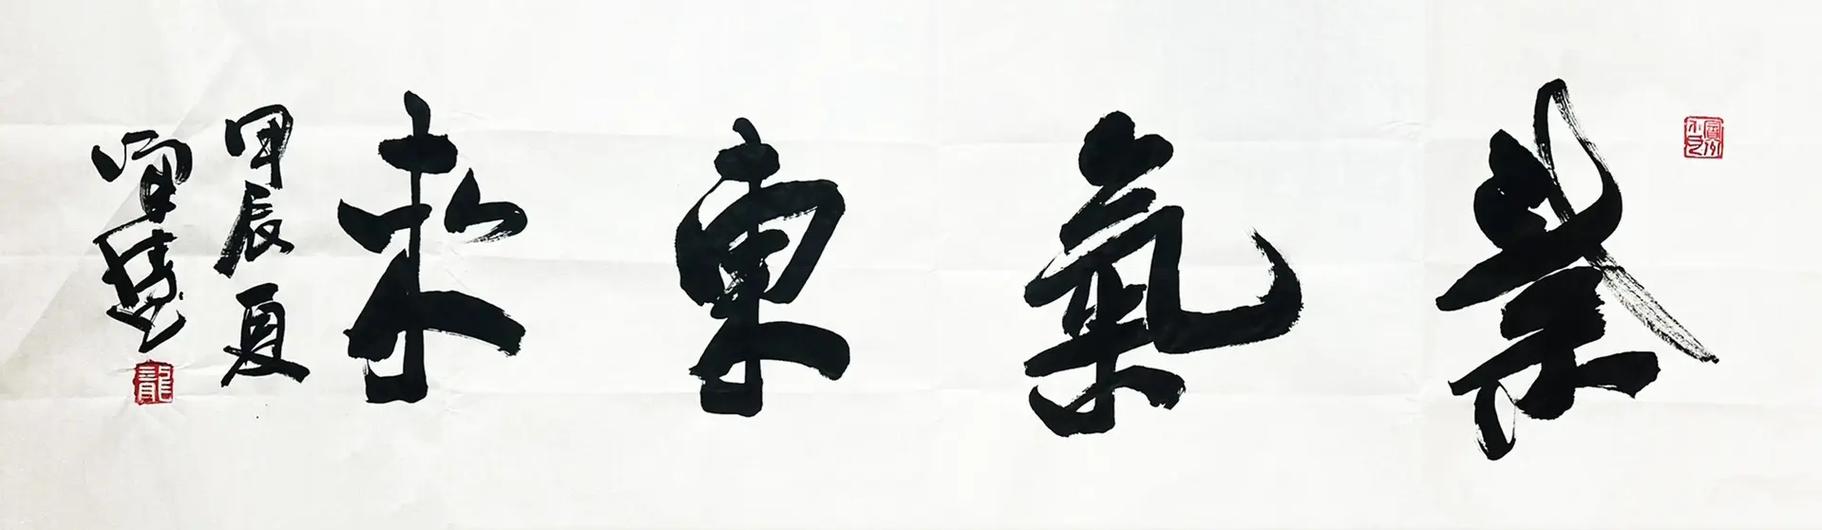 紫氣東來
甲辰夏
龍